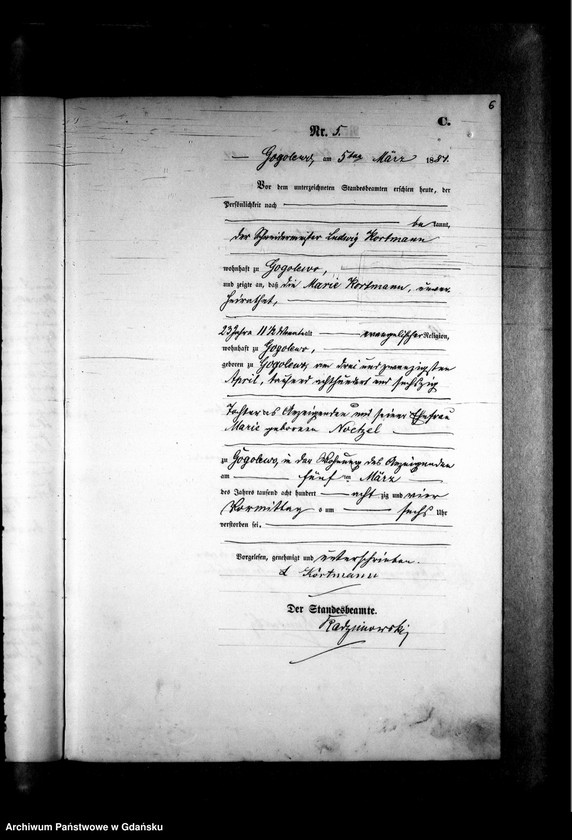 6
C.
Nr. 5.
Gogolewo, am 5ten März 1884.
Vor dem unterzeichneten Standesbeamten erschien heute, der
Persönlichkeit nach
be kannt,
der Schneidermeister Ludwig Kortmann
wohnhaft zu Gogolewo,
und zeigte an, daß die Marie Kortmann, unver
heirathet,
23 Jahre 11 1/2 Monat alt evangelischer Religion,
wohnhaft zu Gogolewo,
geboren zu Gogolewo, am drei und zwanzigsten
April, tausend achthundert und sechszig
Tochter des Anzeigenden und seiner Ehefrau
Marie geborenen Noetzel
zu Gogolewo, in der Wohnung des Anzeigenden
am fünf ten März
des Jahres tausend acht hundert acht zig und vier
Vormittag s um sechs Uhr
verstorben sei.
Vorgelesen, genehmigt und unterschrieben.
L Körtmann
Der Standesbeamte.
Radzimowski
Archiwum Państwowe w Gdańsku